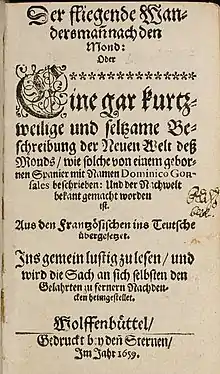 Der fliegende Wan-
dersmann nach den
Mond:
Oder
Eine gar kurtz-
weilige und seltzame Be-
schreibung der Neuen Welt deß
Monds / wie solche von einem gebor-
nen Spanier mit Namen Dominico Gon-
sales beschrieben: Und der Nachwelt
bekant gemacht worden
ist.
Aus den Frantzösischen ins Teutsche
übergesetzt.
Ins gemein lustig zu lesen / und
wird die Sach an sich selbsten den
Gelährten zu fernern Nachden-
cken heimgestellet.
Wolffenbüttel /
Gedruckt bey den Sternen /
Im Jahr 1659.